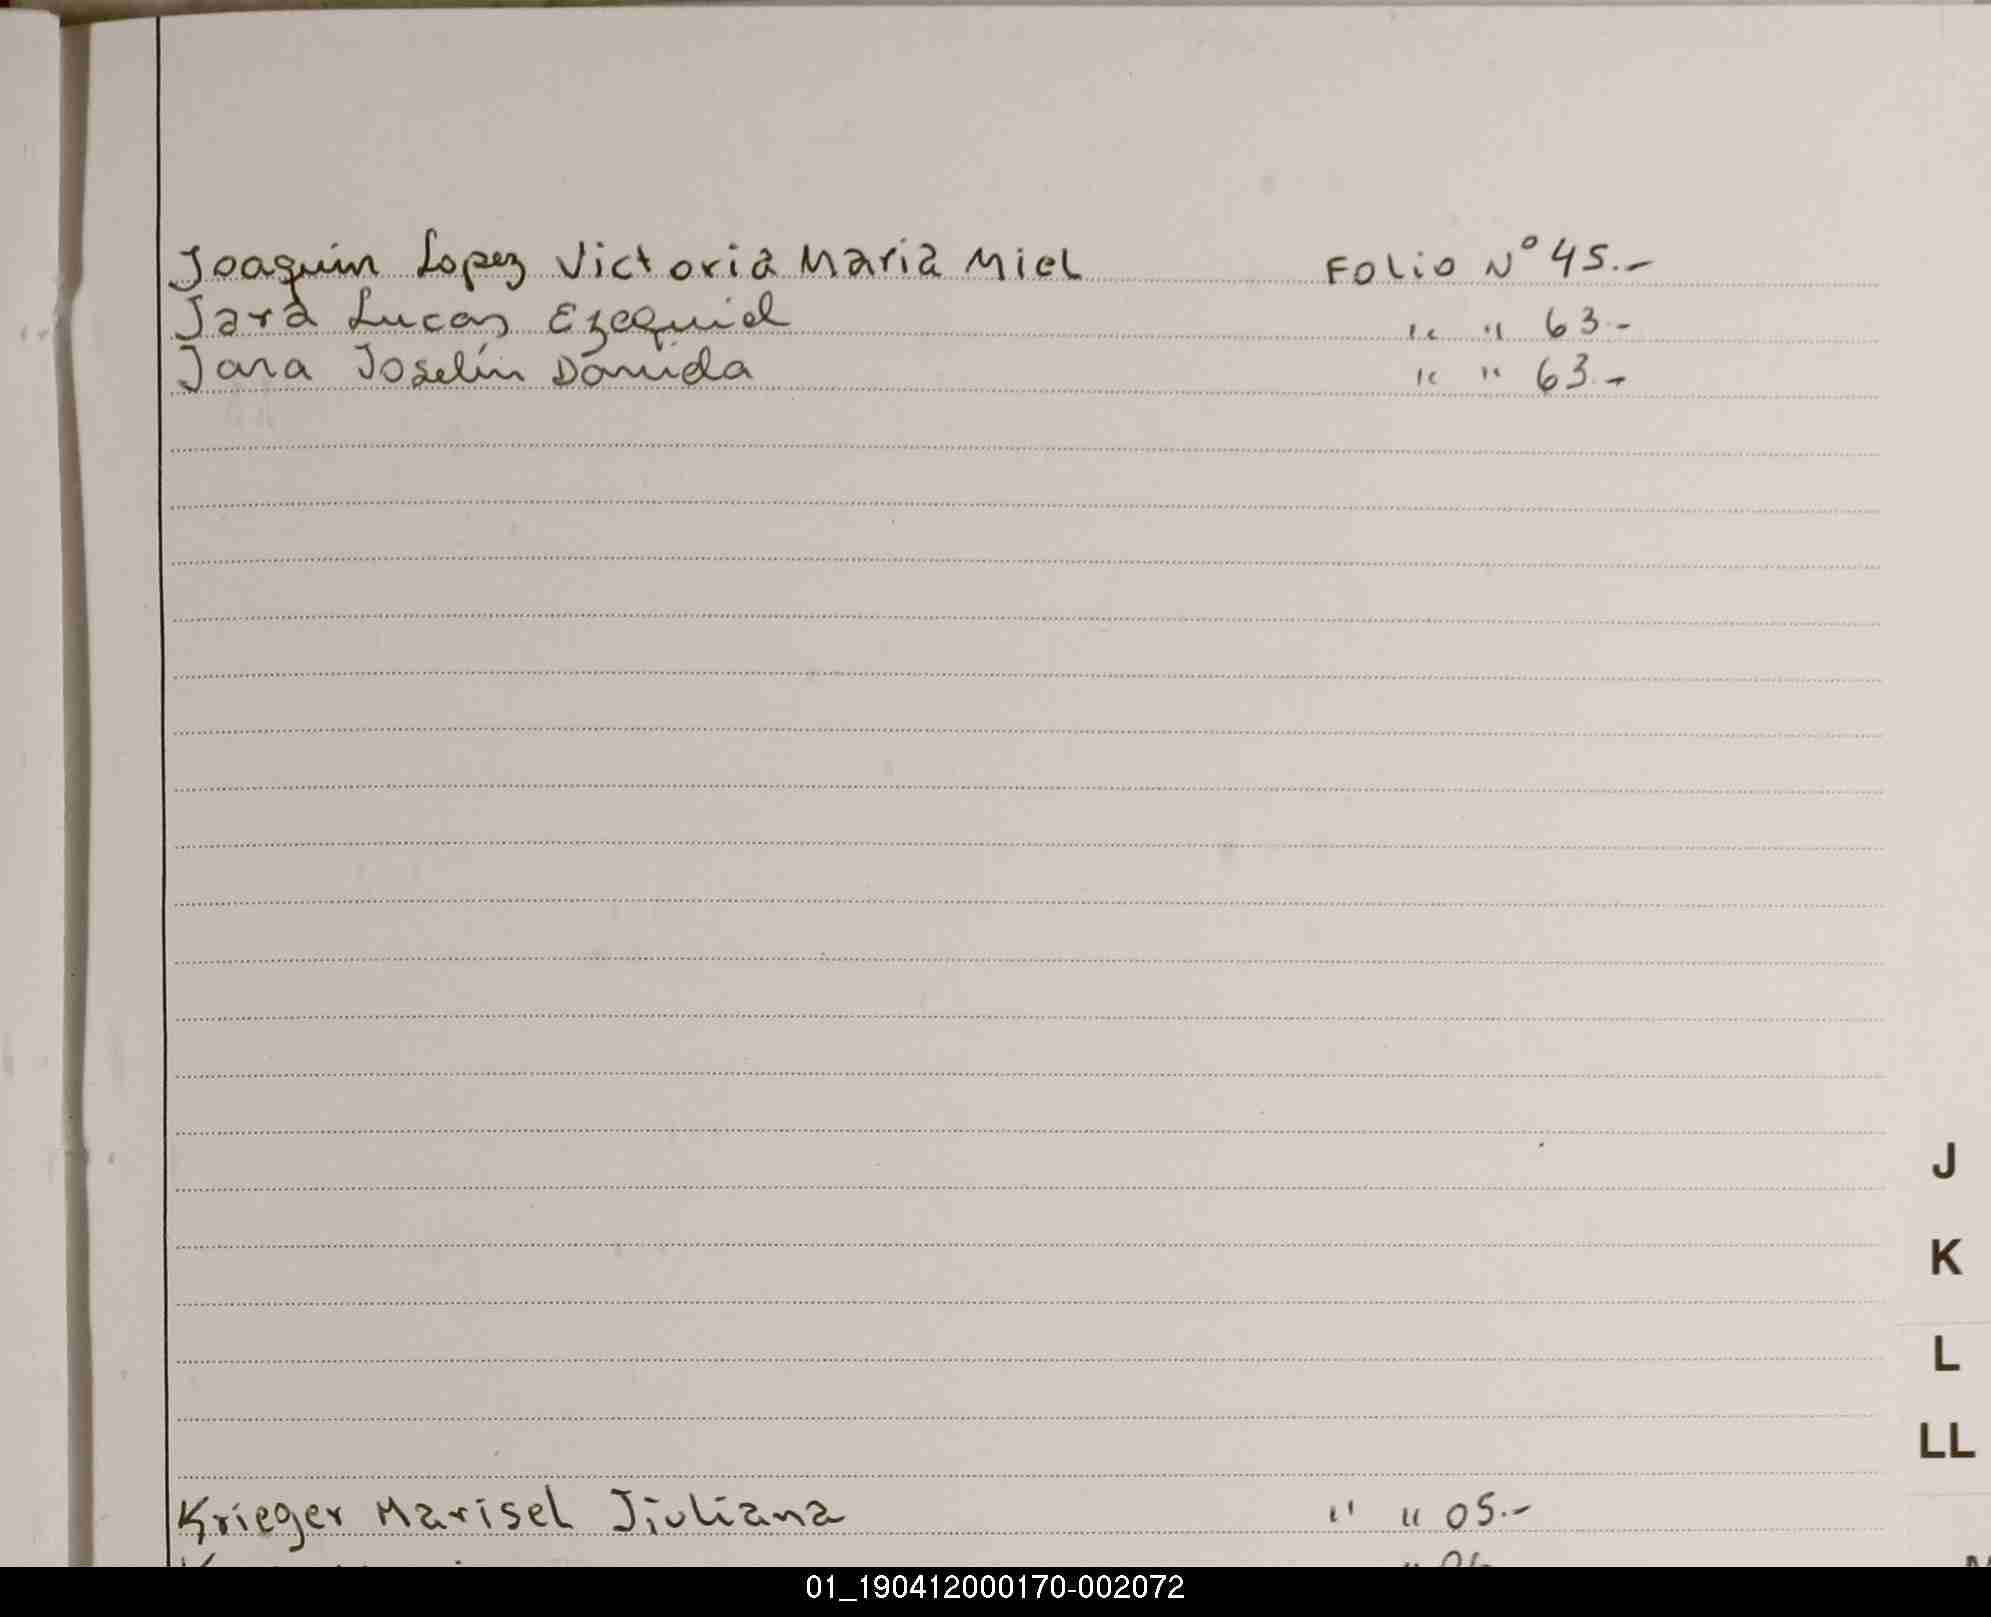 Joaquín Lopez Victoria Maria Miel Folio N° 45.-
Jara Lucas Ezequiel " " 63.-
Jara Joselín Danida " " 63.-
J
K
L
LL
Krieger Marisel Jiuliana " " 05.-
01_190412000170-002072